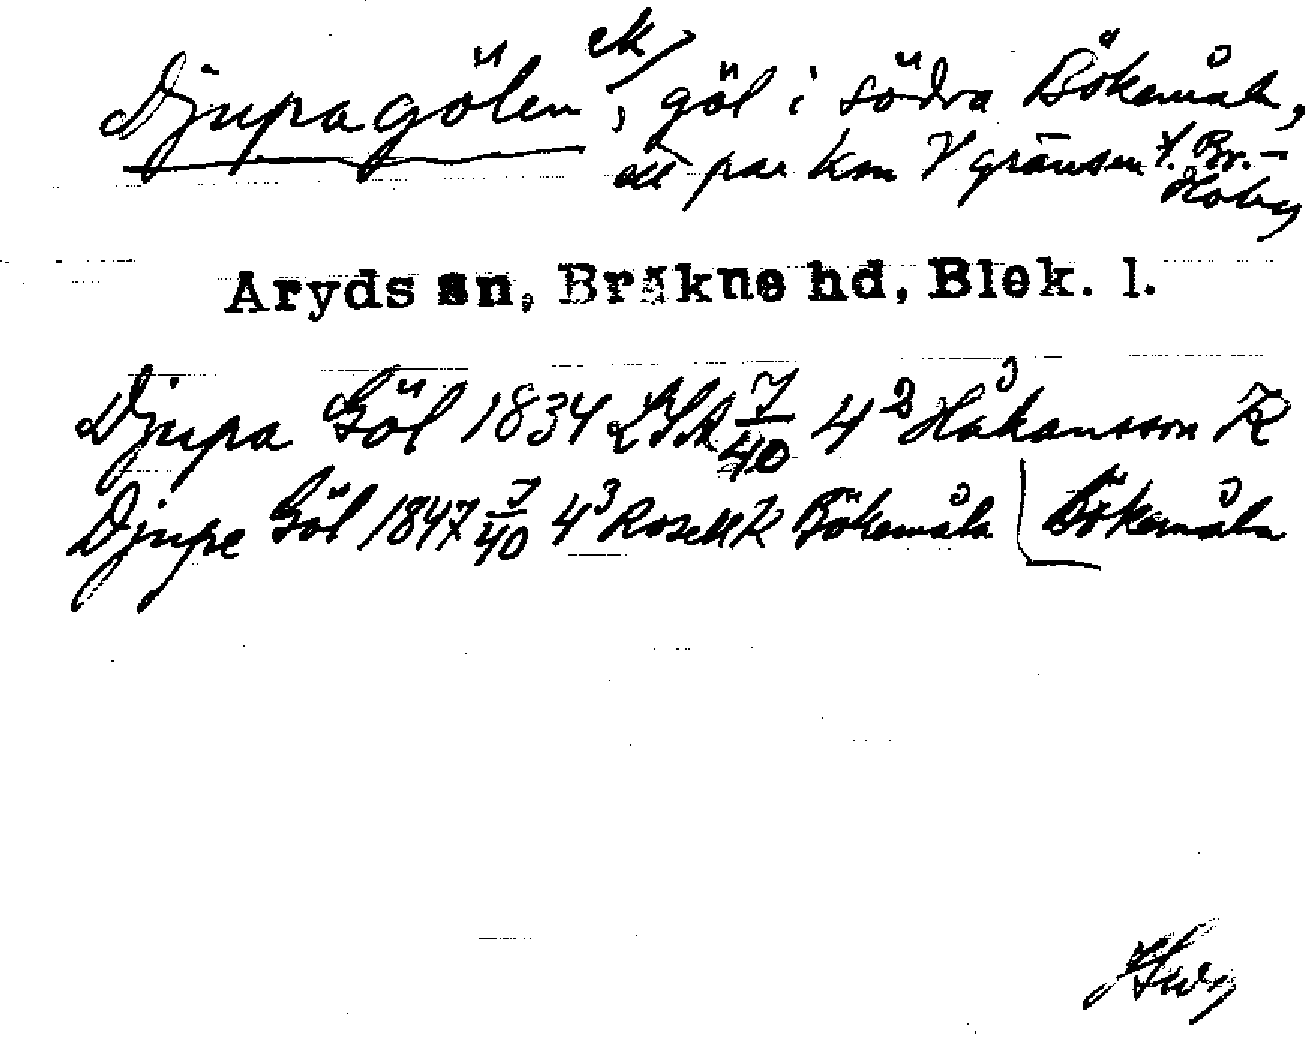 Djupagölen ek/, göl i södra Bökemåla,
ett par km V gränsen t. Br.-
Hoby
Aryds sn, Bräkne hd, Blek. l.
Djupa Göl 1834 LSA 7/40 4² Håkansson K
Djupe Göl 1847 7/40 4³ Rosell K Bökemåla Bökemåla